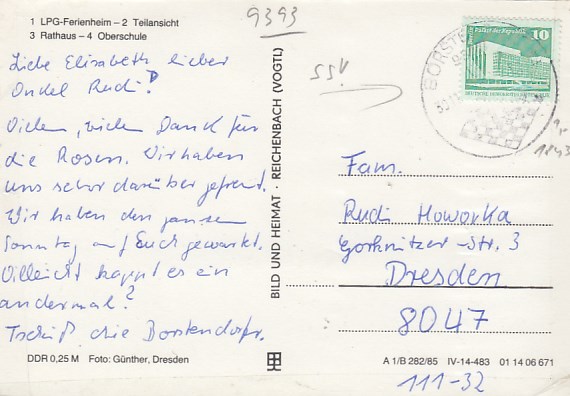 1 LPG-Ferienheim – 2 Teilansicht
3 Rathaus – 4 Oberschule
9393
Liebe Elisabeth lieber
Onkel Rudi!
Vielen, vielen Dank für
die Rosen. Wir haben
uns sehr darüber gefreut.
Wir haben den ganzen
Sonntag auf Euch gewartet.
Villeicht klappt es ein
andermal?
Tschüß die Borstendorfer.
DDR 0,25 M Foto: Günther, Dresden
BILD UND HEIMAT · REICHENBACH (VOGTL)
SSV
10
DEUTSCHE DEMOKRATISCHE REPUBLIK
1843
Fam.
Rudi Howorka
Gorknitzer-Str. 3
Dresden
8047
A 1/B 282/85 IV-14-483 01 14 06 671
111-32